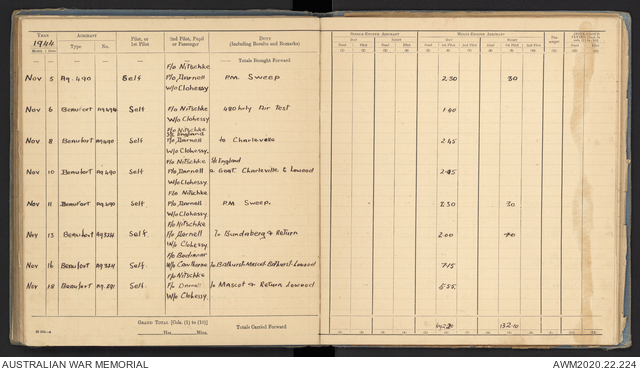 YEAR
1944
AIRCRAFT
Pilot, or 1st Pilot
2nd Pilot, Pupil or Passenger
DUTY
(Including Results and Remarks)
Month Date
Type
No.
— Totals Brought Forward
F/o Nitschke
Nov 5 A9.490 Self P/o Darnell P.M. Sweep 2.50 30
W/o Clohessy
Nov 6 Beaufort Self F/o Nitschke 480 hrly Air Test 1.40
W/o Clohessy
F/o Nitschke
S/L England
Nov 8 Beaufort A9.490 Self P/o Darnell to Charleville 2.45
W/o Clohessy
F/o Nitschke S/L England
Nov 10 Beaufort A9.490 Self P/o Darnell Charleville & Lowood 2.45
W/o Clohessy
F/o Nitschke
Nov 11 Beaufort A9.490 Self P/o Darnell P.M Sweep. 30
W/o Clohessy
F/o Nitschke
Nov 13 Beaufort A9.324 Self P/o Darnell To Bundaberg & Return 2.00
W/o Clohessy
Nov 16 Beaufort A9.324 Self to Bathurst-Mascot-Bathurst-Lowood 7.15
F/o Nitschke
Nov 18 Beaufort Self P/o Darnell to Mascot & Return Lowood 5.55
W/o Clohessy.
GRAND TOTAL [Cols. (1) to (10)]
Hrs. Mins.
Totals Carried Forward
SINGLE-ENGINE AIRCRAFT
MULTI-ENGINE AIRCRAFT
DAY
NIGHT
DAY
NIGHT
Dual
Pilot
Dual
Pilot
Dual
1st Pilot
2nd Pilot
Dual
1st Pilot
2nd Pilot
132.10
AUSTRALIAN WAR MEMORIAL
AWM2020.22.224